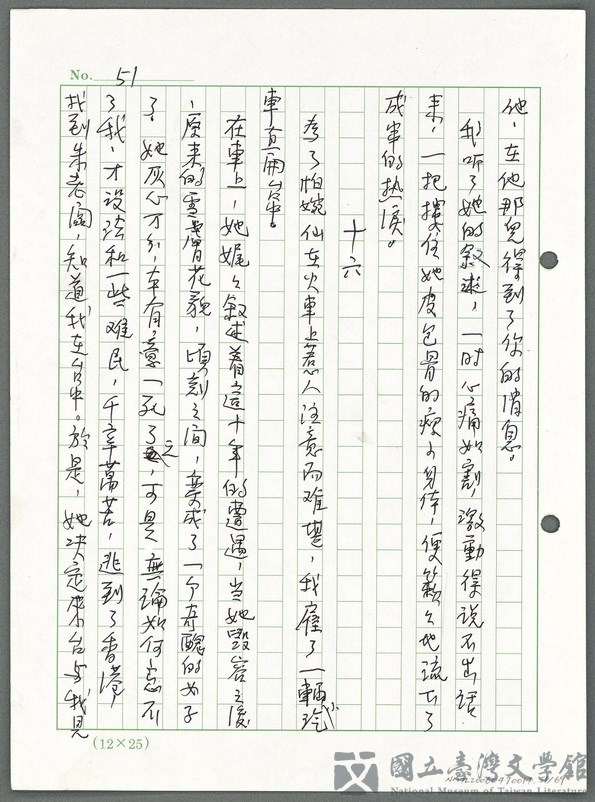 No. 51
他，在他那兒得到了你的消息。
我听了她的叙述，一时心痛如割，激動得说不出话
来，一把摟住她皮包骨的瘦小身体，便簌々地流下了
成串的热淚。
十六
為了怕婉仙在火車上惹人注意而难堪，我雇了一輛小汽
車直開台中。
在車上，她娓々叙述着這十年的遭遇，当她毁容之後
，原来的雪膚花貌，頃刻之间，变成了一个奇醜的女子
了，她灰心万分，本有意一死了之，可是無論如何忘不
了我，才设法和一些难民，千辛萬苦，逃到了香港，
找到朱老闆，知道我在台中。於是，她决定来台与我見
(12×25)
國立臺灣文學館
National Museum of Taiwan Literature